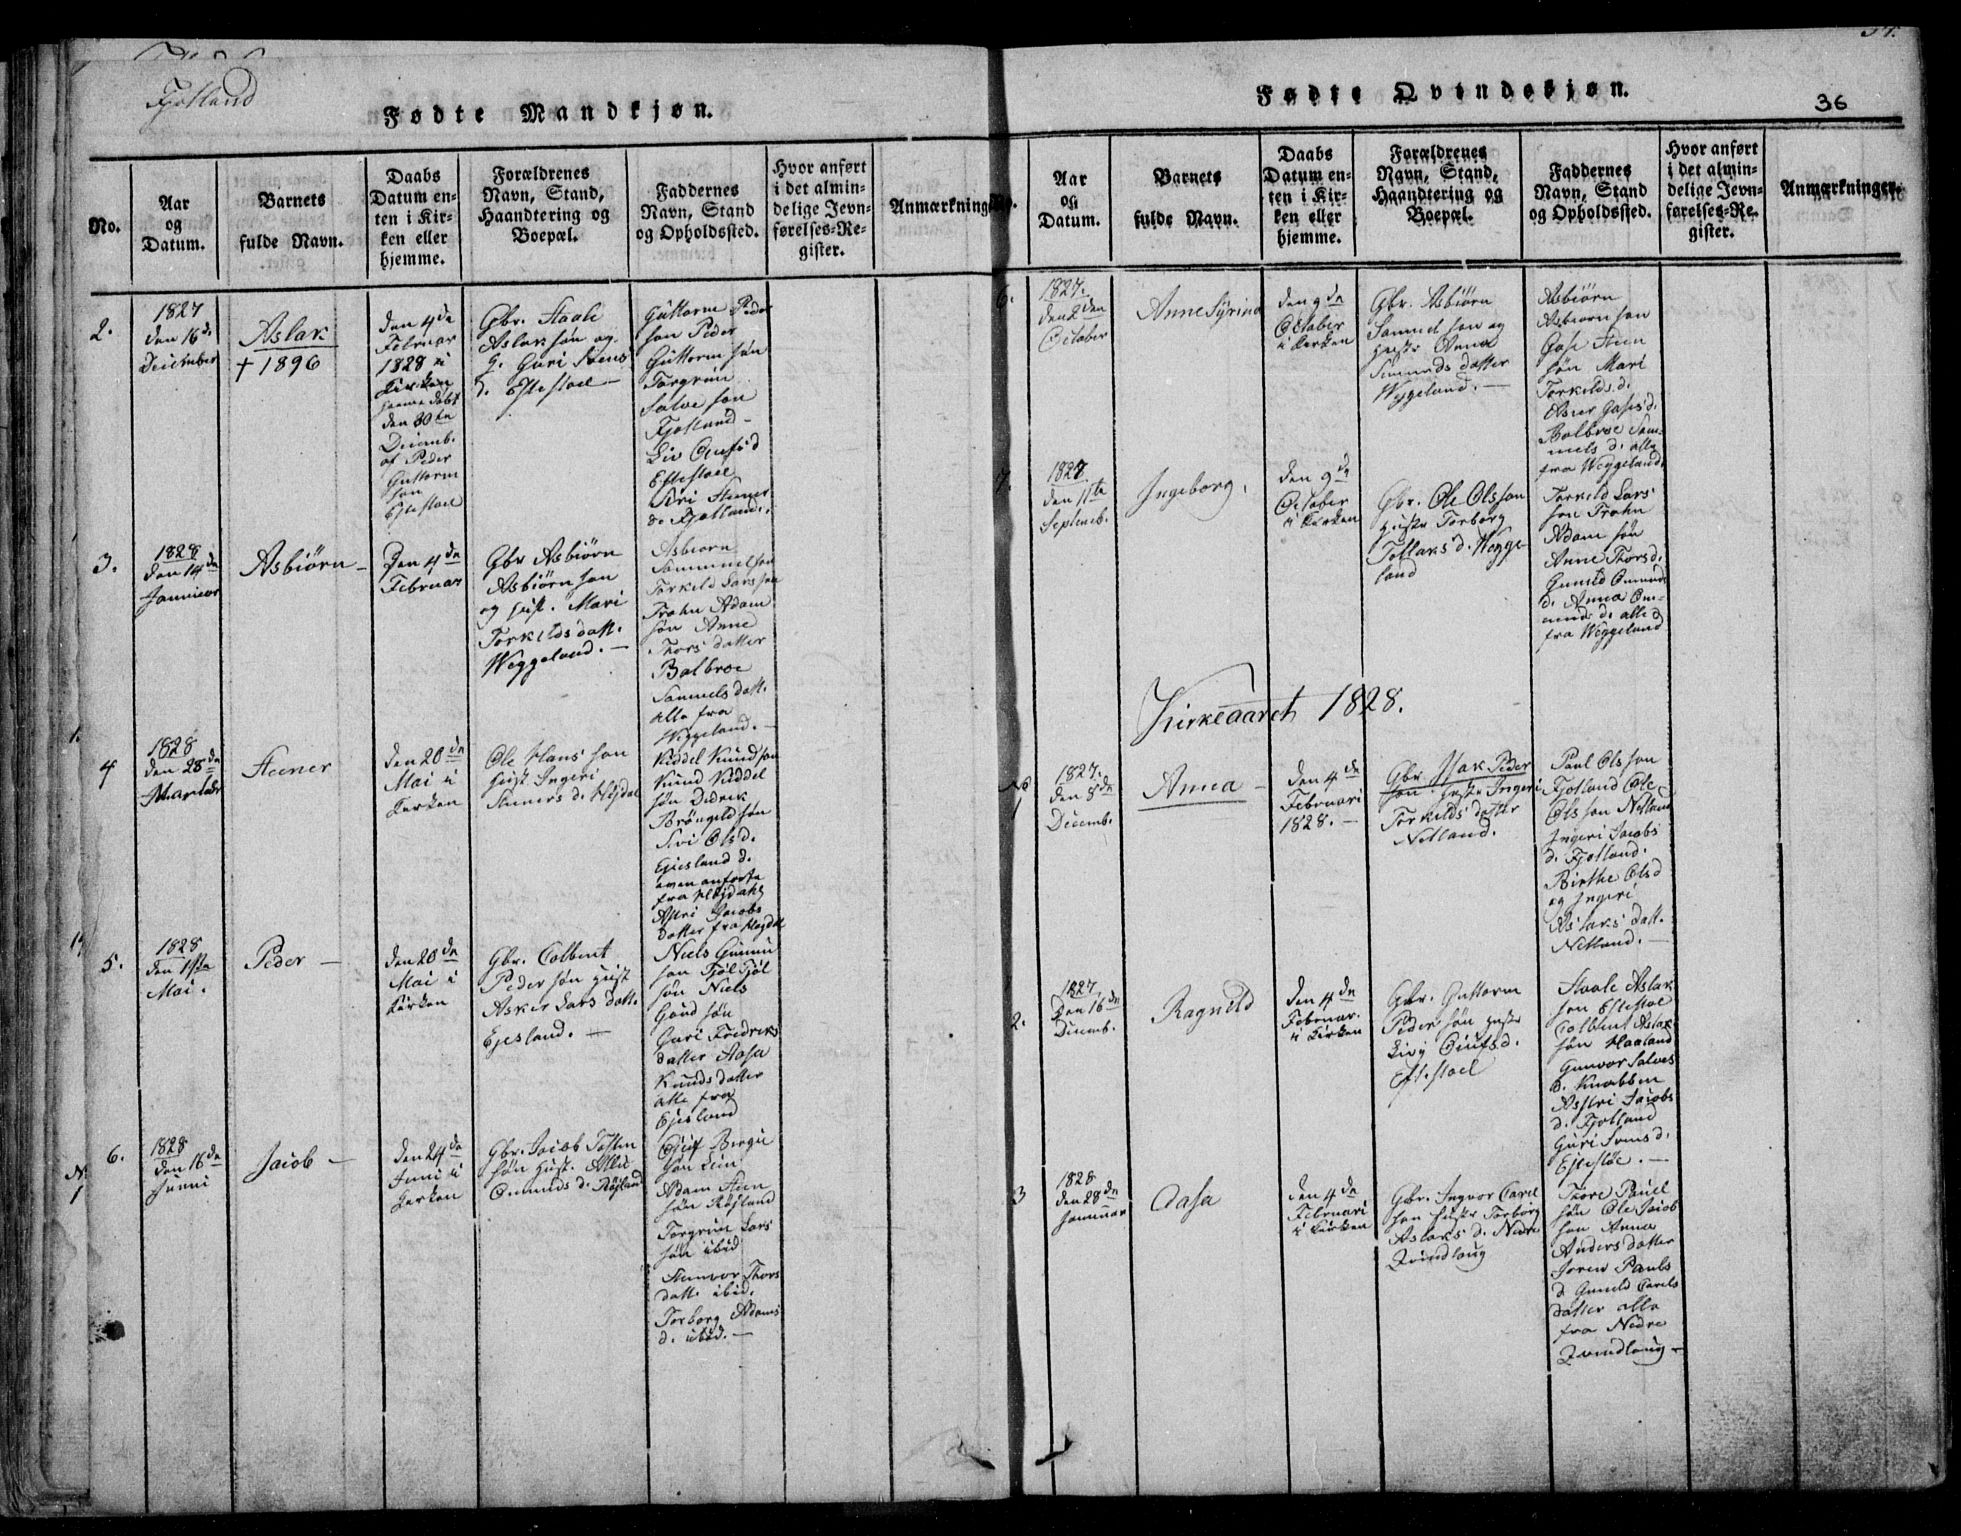 Fjotland
Fødte Mandkjøn.
No.
Aar
og
Datum.
Barnets
fulde Navn.
Daabs
Datum en-
ten i Kir-
ken eller
hjemme.
Forældrenes
Navn, Stand,
Haandtering og
Boepæl.
Faddernes
Navn, Stand
og Opholdssted.
Hvor anført
i det almin-
delige Jevn-
førelses-Re-
gister.
Anmærkning
2.
1827
den 16de
December
Aslak
+ 1896
den 4de
Februar
1828 i
Kirken
hjemme døbt
den 30te
Decemb.
af Peder
Guttorm
søn
Eftestoel
Gbr. Staale
Aslaksøn og
G. Guri Svens
d. Eftestoel —
Guttorm Peder
søn Peder
Guttorm søn
Torgrim
Salve søn
Fjotland —
Liv Olufs d
Eftestoel
Siri Steners
d. Fjotland.
3.
1828
den 14de
Januar
Asbiørn —
Den 4de
Februar
Gbr Asbiørn
Asbiørnsøn
og hust. Mari
Torkilds datt.
Weggeland. —
Asbiørn
Sammuelsøn
Torkild Larssøn
Trohn Adam
søn Anne
Thors datter
Balbroe
Samuels datt.
alle fra
Weggeland. —
4
1828
den 28de
Martii
Steener
den 20de
Mai i
Kirken
Ole Hans søn
hust Ingeri
Steners d.
Kiddel Knudsøn
Knud Kiddel
søn Didrik
Brøngeld søn
Sivi Ols d.
Ejesland d.
oven anførte
fra
Astri Jacobs
datter fra
5.
1828
den 1ste
Mai.
Peder —
den 20de
Mai i
Kirken
Gbr. Colbent
Peder søn hust
Asker Lars datt.
Ejesland. —
Niels Gunnu
søn Fjøl Fjøl
søn Niels
søn
Guri Fredriks
datter Aasa
Knuds datter
alle fra
Ejesland
6.
1828
den 16de
Junni
Jacob —
den 24de
Juni i
Kirken
Gbr. Jacob Tosten
søn hust. Allu
Omunds d. Røjland
Oluf Børge
søn
Adam Sten
søn Røjland
Torgrim Lars
søn ibid
Steinvor Thors
datt. ibid.
Torborg Adams
d. ibid. —
Fødte Qvindekjøn.
36
Aar
og
Datum.
Barnets
fulde Navn.
Daabs
Datum en-
ten i Kir-
ken eller
hjemme.
Forældrenes
Navn, Stand,
Haandtering og
Boepæl.
Faddernes
Navn, Stand
og Opholdssted.
Hvor anført
i det almin-
delige Jevn-
førelses-Re-
gister.
Anmærkninger.
6.
1827.
den 2den
October
Anne Syrina
den 9de
October
i Kirken
Gbr. Asbiørn
Samuel søn og
hustr Anna
Simunds datter
Weggeland. —
Asbiørn
Asbiørn søn
Gose Steen
søn Mari
Torkilds d.
Aaser Goses d.
Balbroe Sam-
uels d. alle
fra Weggeland.
7.
1827
den 11te
Septemb.
Ingeborg.
den 9de
October
i Kirken
Gbr. Ole Olssøn
hustr Torborg
Tollaks d. Wegge
land
Torkild Lars
søn Trohn
Adam søn
Anne Thors d.
Gunild Omunds
d. Anna Om-
unds d. alle
fra Weggeland
Kirkeaaret 1828.
No
1
1827.
den 8de
Decemb.
Anna —
den 4de
Februari
1828. —
Gbr. Isak Peder
søn hustr Ingeri
Torkilds datter
Netland.
Paul Olssøn
Fjotland Ole
Olssøn Netland
Ingeri Jacobs
d. Fjotland.
Birthe Ols d
og Ingeri
Aslaks datt.
Netland. —
2.
1827
Den 16de
Decemb.
Ragnild
den 4de
Februar.
i Kirken
Gbr. Guttorm
Peder søn hustr
Livj Olufs d.
Eftestoel
Staale Aslak
søn Eftestoel
Colbent Aslak
søn Haaland
Gunvor Salves
d. Knabben
Asstri Jacobs
d. Fjotland
Guri Svens d.
Eftestøe. —
3
1828
den 28de
Januar
Aasa
den 4de
Februari
i Kirken
Gbr. Ingvor Carel
søn hustr Torborg
Aslaks d. Nedre
Qvindlaug
Thore Pauel
søn Ole Jacob
søn Anna
Anders datter
Soren Pauls
d. Gunild Carels
datter alle
fra Nedre
Qvindlaug —